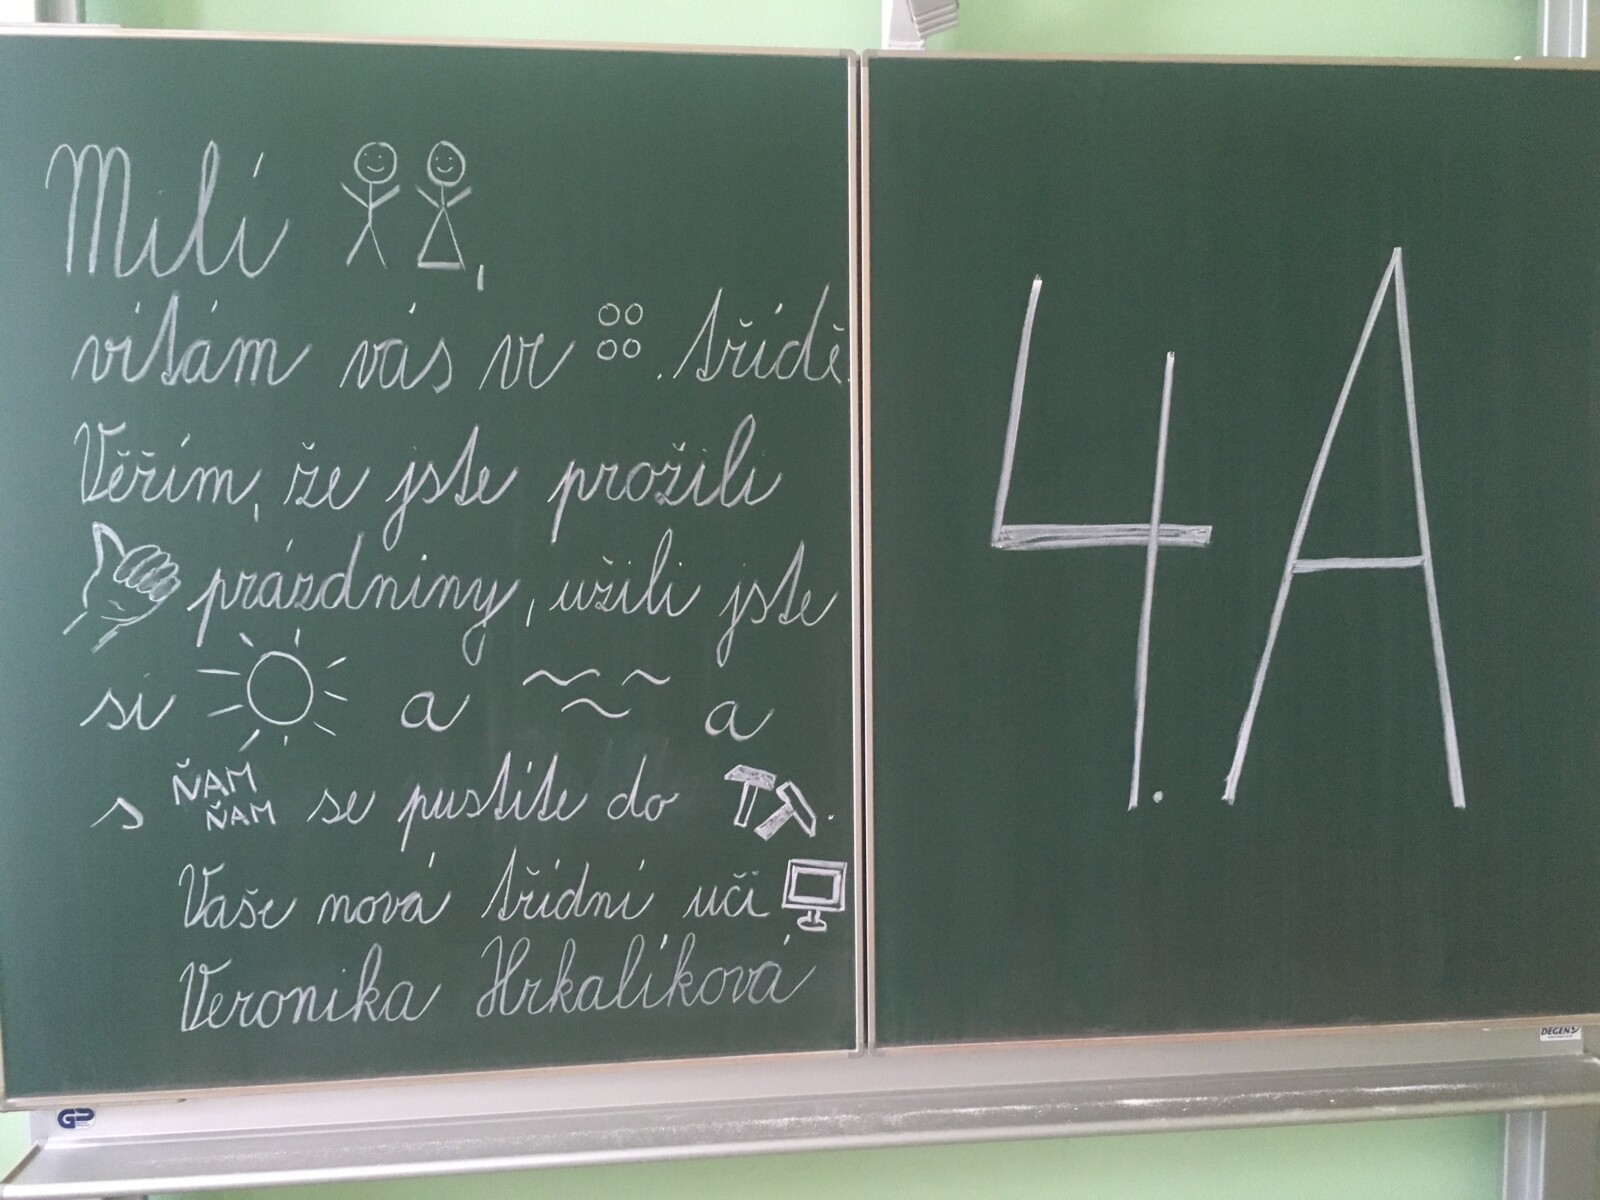 Milí ,
vítám vás ve . třídě.
Věřím, že jste prožili
prázdniny, užili jste
si a a
s ŇAM ŇAM se pustíte do .
Vaše nová třídní uči
Veronika Hrkalíková
4.A
DEGEN